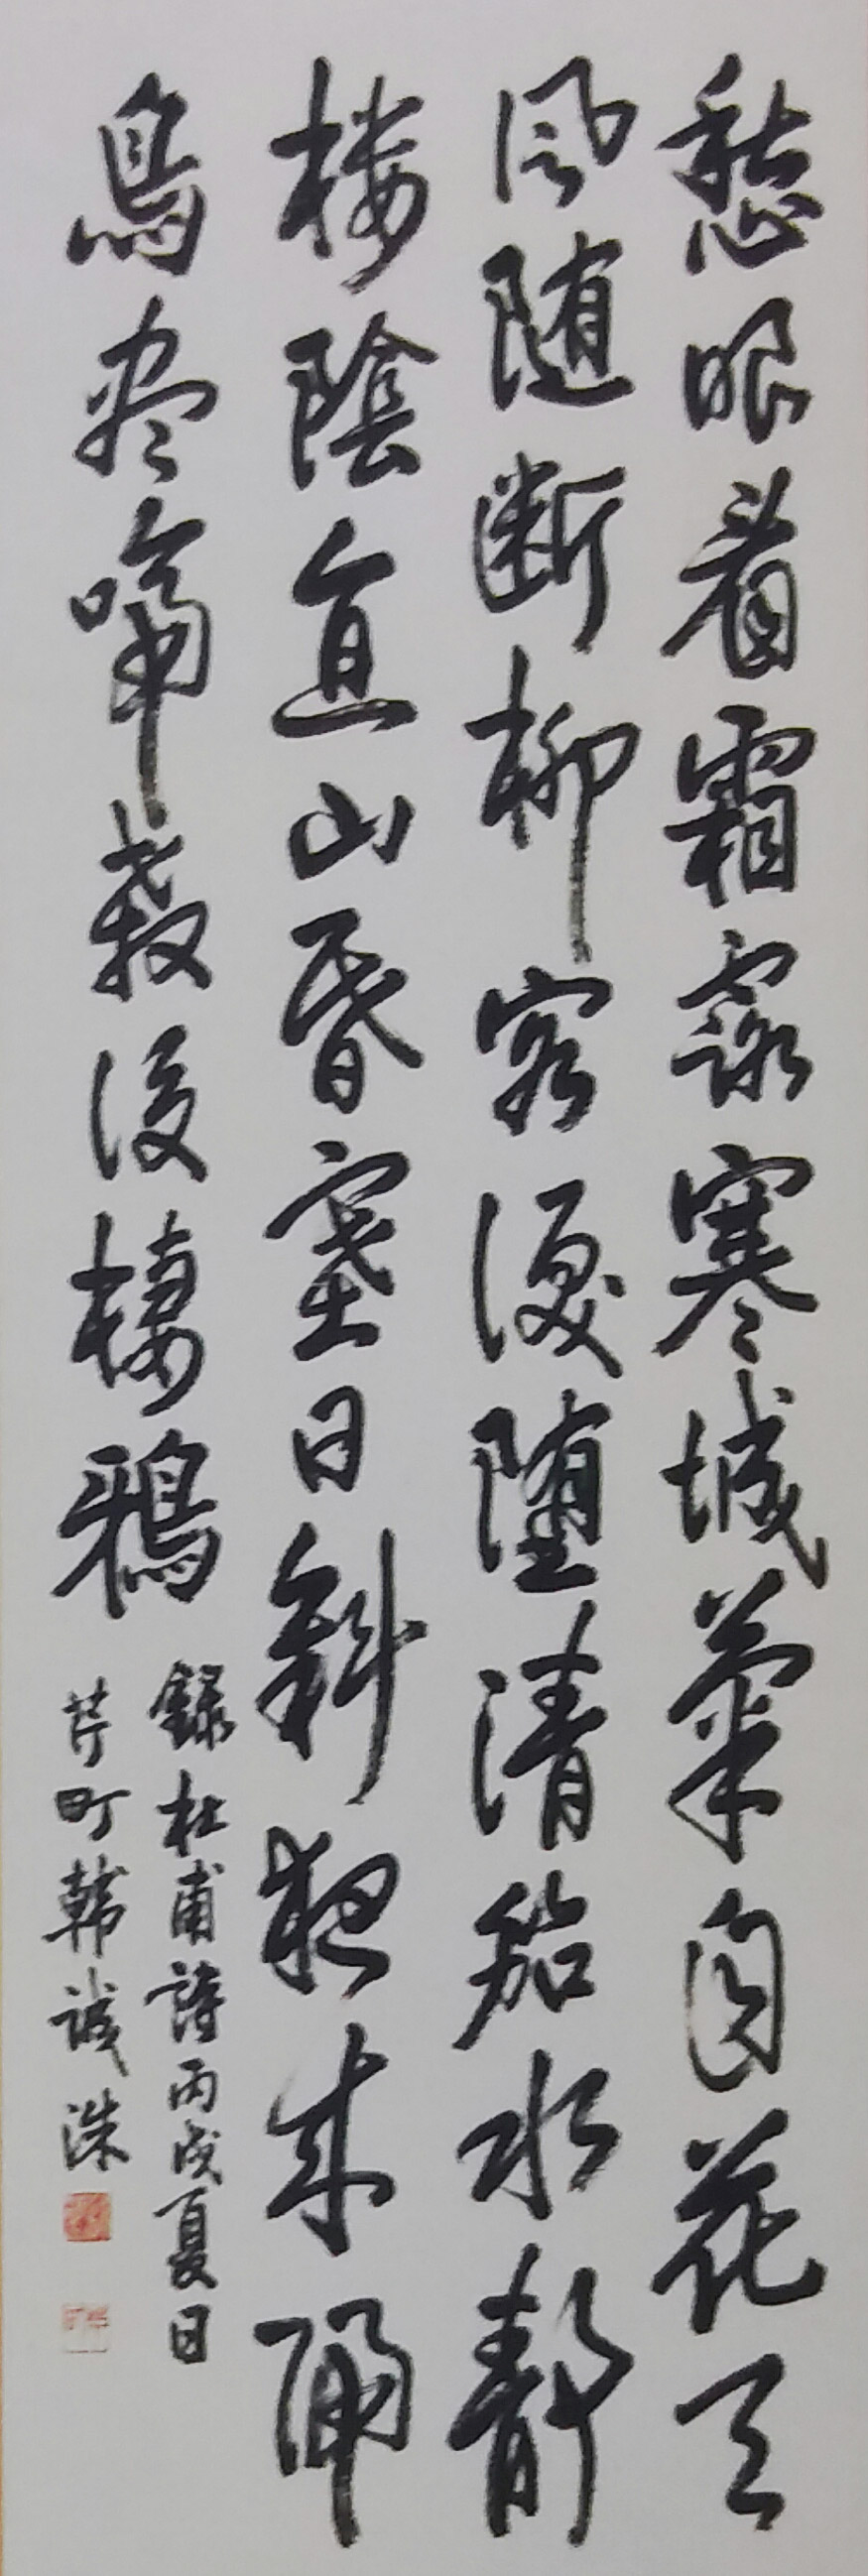 愁眼看霜露寒城菊自花天
風随断柳客淚堕清笳水静
楼陰直山昏塞日斜夜来歸
鳥尽啼殺後棲鴉
録杜甫詩丙戌夏日
芹町韓誠洙